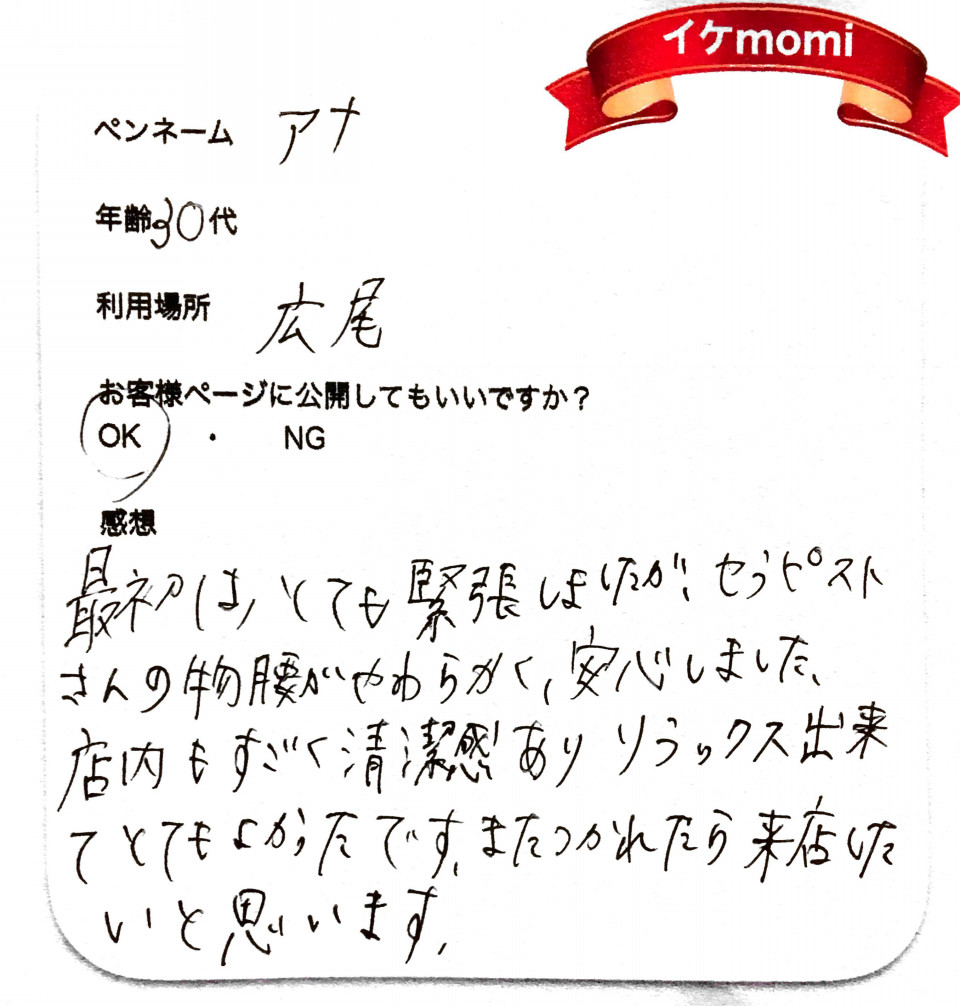 イケmomi
ペンネーム アナ
年齢30代
利用場所 広尾
お客様ページに公開してもいいですか？
OK ・ NG
感想
最初は、とても緊張しましたが、セラピスト
さんの物腰がやわらかく、安心しました、
店内もすごく清潔感あり リラックス出来
てとてもよかったです、またつかれたら来店した
いと思います、